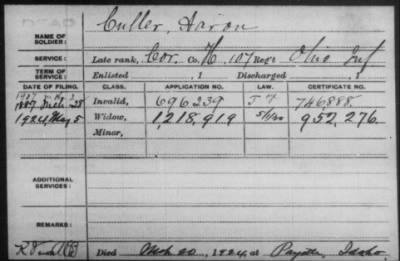 NAME OF SOLDIER: Culler, Aaron
SERVICE: Late rank, Cor. Co. H, 107 Reg't Ohio Inf
TERM OF SERVICE: Enlisted , 1 Discharged , 1
DATE OF FILING. CLASS. APPLICATION NO. LAW. CERTIFICATE NO.
1889 Mch 28 Invalid, 696239 746888
1924, May 5 Widow, 1,218,919 952,276
Minor,
ADDITIONAL SERVICES:
REMARKS:
Died Mch 20, 1924, at Payette, Idaho